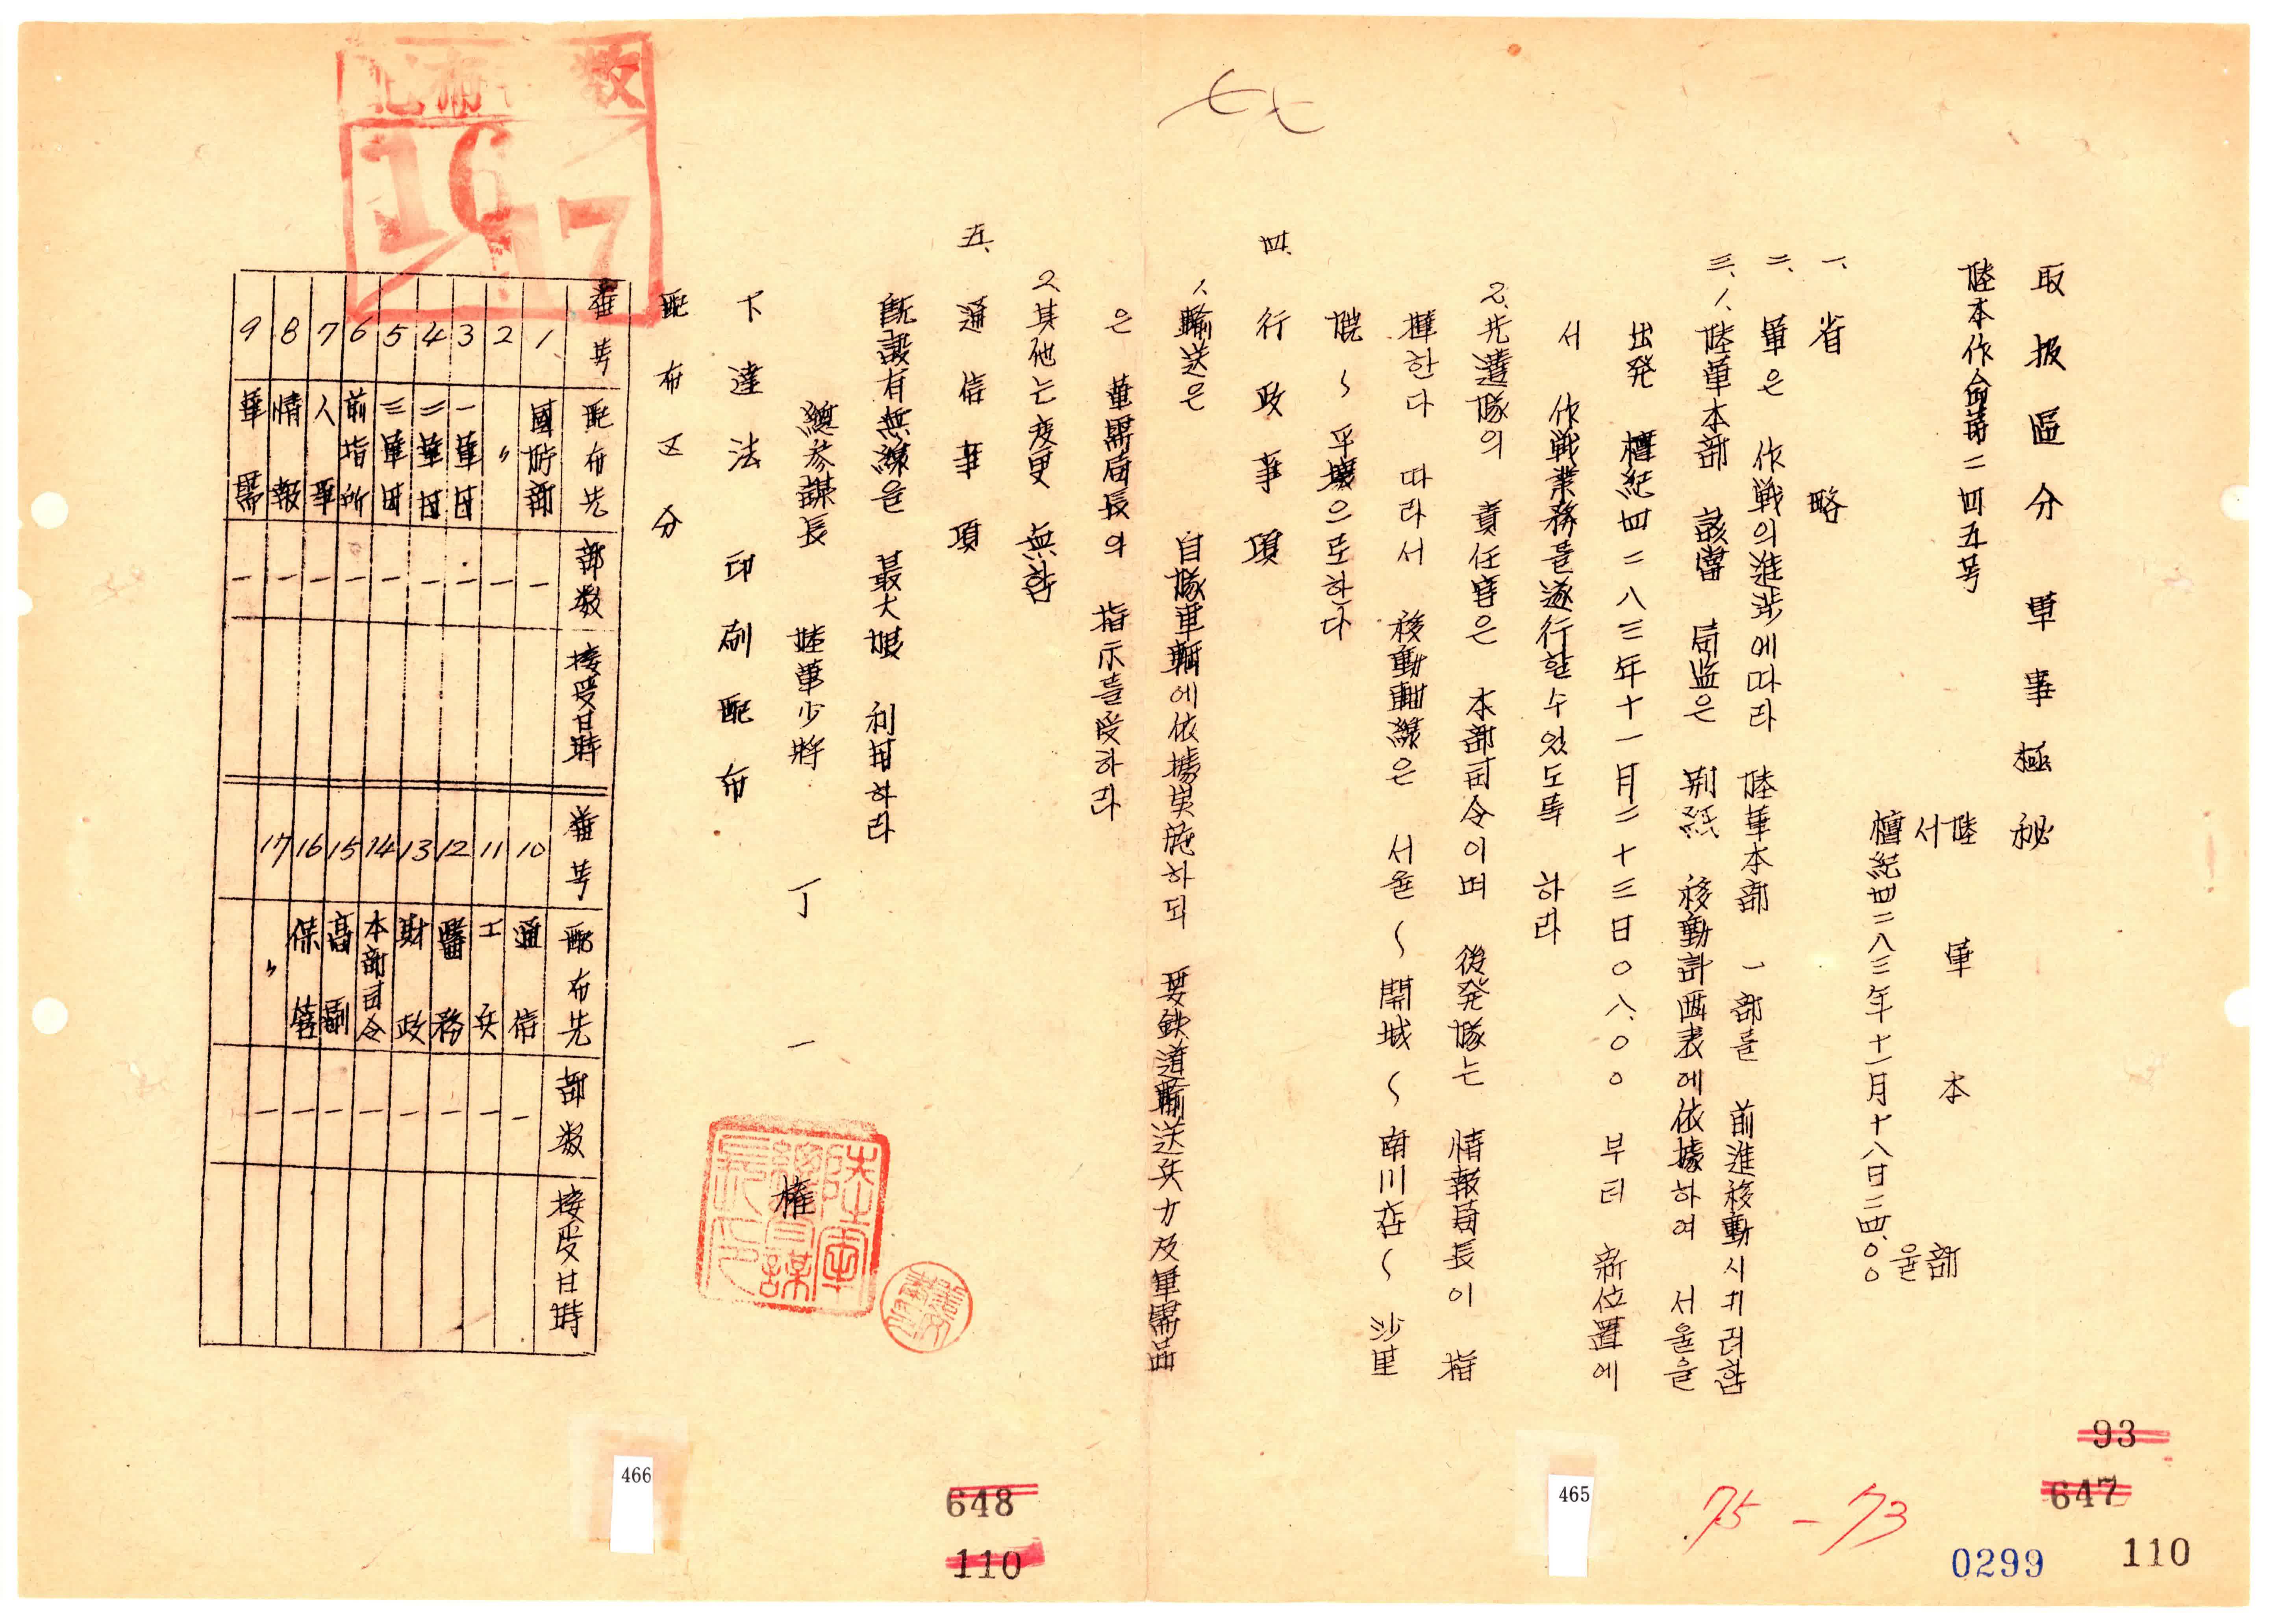 取扱區分 軍事極秘
陸本作命第二四五号
陸軍本部
서울
檀紀四二八三年十一月十八日二四.〇〇
一、省略
二、軍은 作戦의進涉에따라 陸軍本部 一部를 前進移動시키려함
三、1.陸軍本部 該當 局監은 別紙 移動計画表에依據하여 서울을
出発 檀紀四二八三年十一月二十三日〇八.〇〇 부터 新位置에
서 作戦業務를遂行할수있도록 하라
2.先遣隊의 責任官은 本部司令이며 後発隊는 情報局長이 指
揮한다 따라서 移動軸線은 서울~開城~南川店~沙里
院~平壤으로한다
四、行政事項
1.輸送은 自隊車輛에依據実施하되 要鉄道輸送兵力及軍需品
은 軍需局長의 指示를受하라
2.其他는変更 無함
五、通信事項
既設有無線을 最大限 利用하라
總参謀長 陸軍少將 丁一權
陸軍總參謀長印
下達法 印刷配布
配布区分
番号 配布先 部数 接受日時 番号 配布先 部数 接受日時
1 國防部 一 10 通信 一
2 〃 一 11 工兵 一
3 一軍団 一 12 醫務 一
4 二軍団 一 13 財政 一
5 三軍団 一 14 本部司令 一
6 前指所 一 15 高副 一
7 人事 一 16 保管 一
8 情報 一 17 〃 一
9 軍需 一
数
16
17
466
648
110
465
75-73
93
647
0299
110